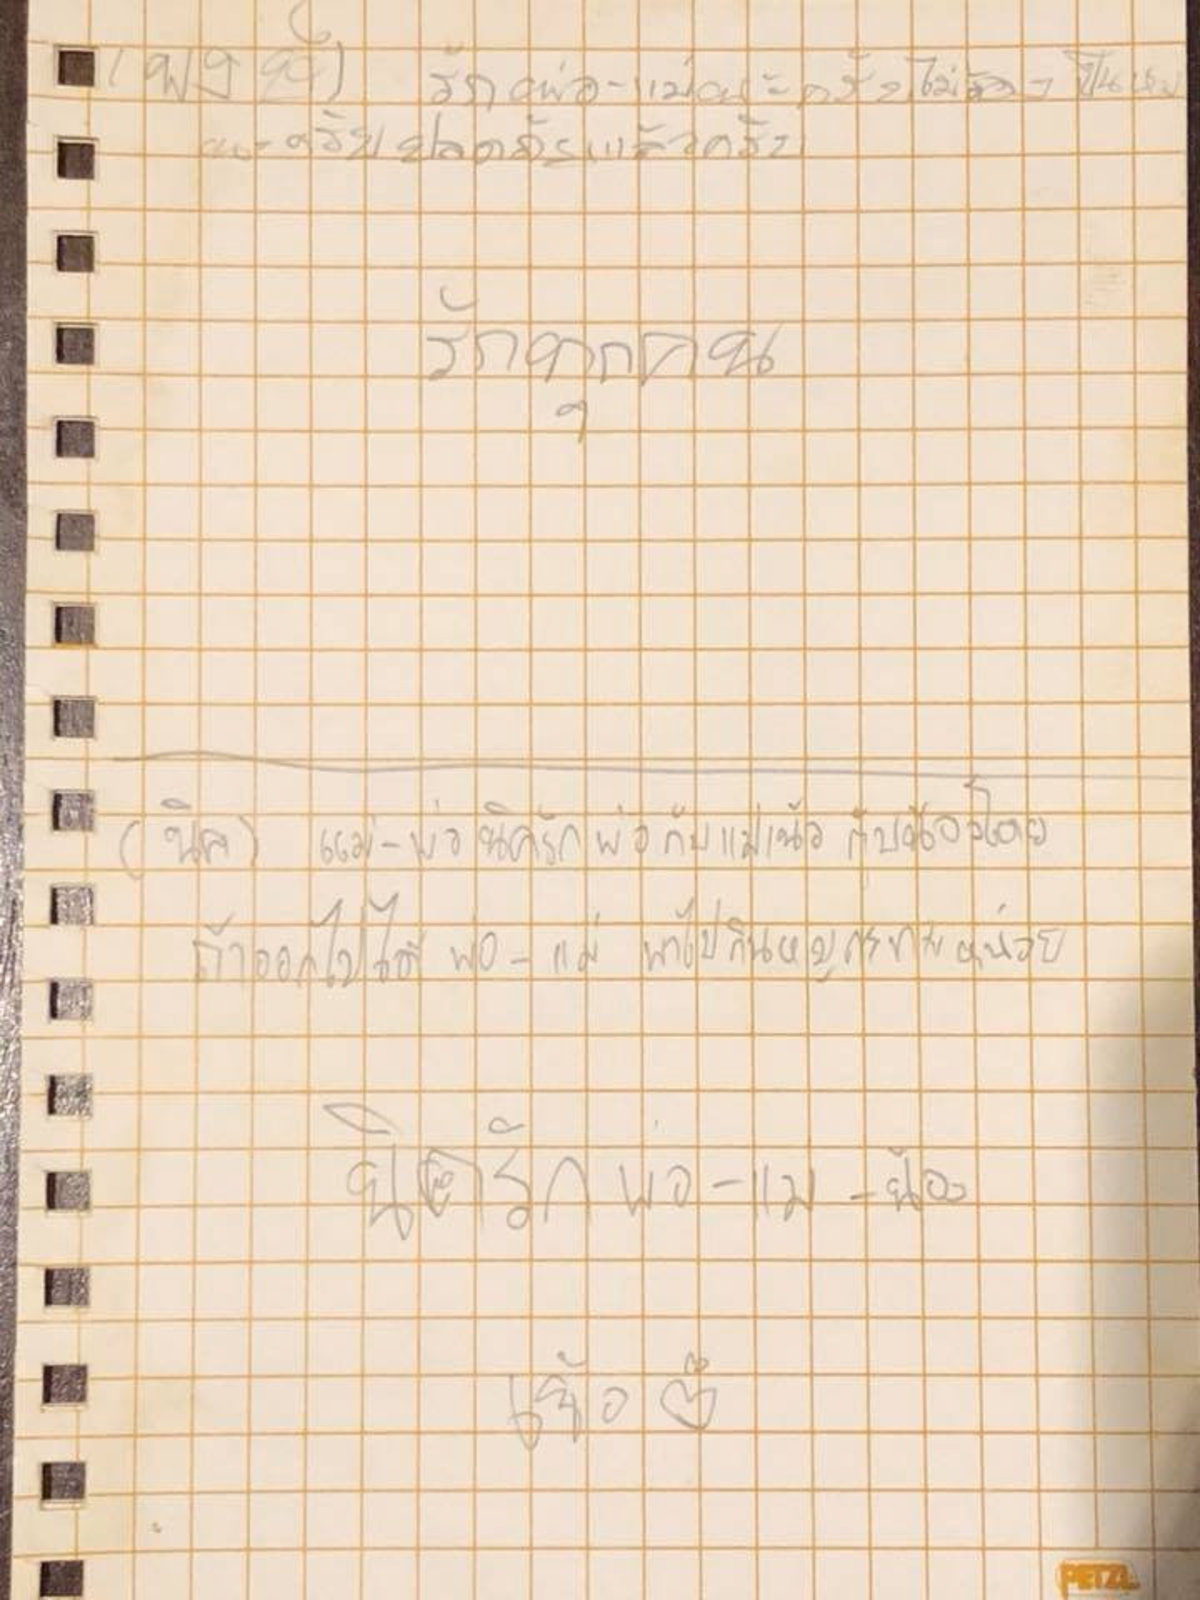 (มงจี้) รักพ่อ-แม่นะครับไม่ต้องเป็นห่วง
นะครับปลอดภัยแล้วครับ
รักทุกคน
(นิค) แม่-พ่อ นิครักพ่อกับแม่เน้อ กับน้องโดย
ถ้าออกไปได้ พ่อ-แม่ พาไปกินหมูกระทะหน่วย
นิครัก พ่อ-แม่ -น้อง
เน้อ
PETZL